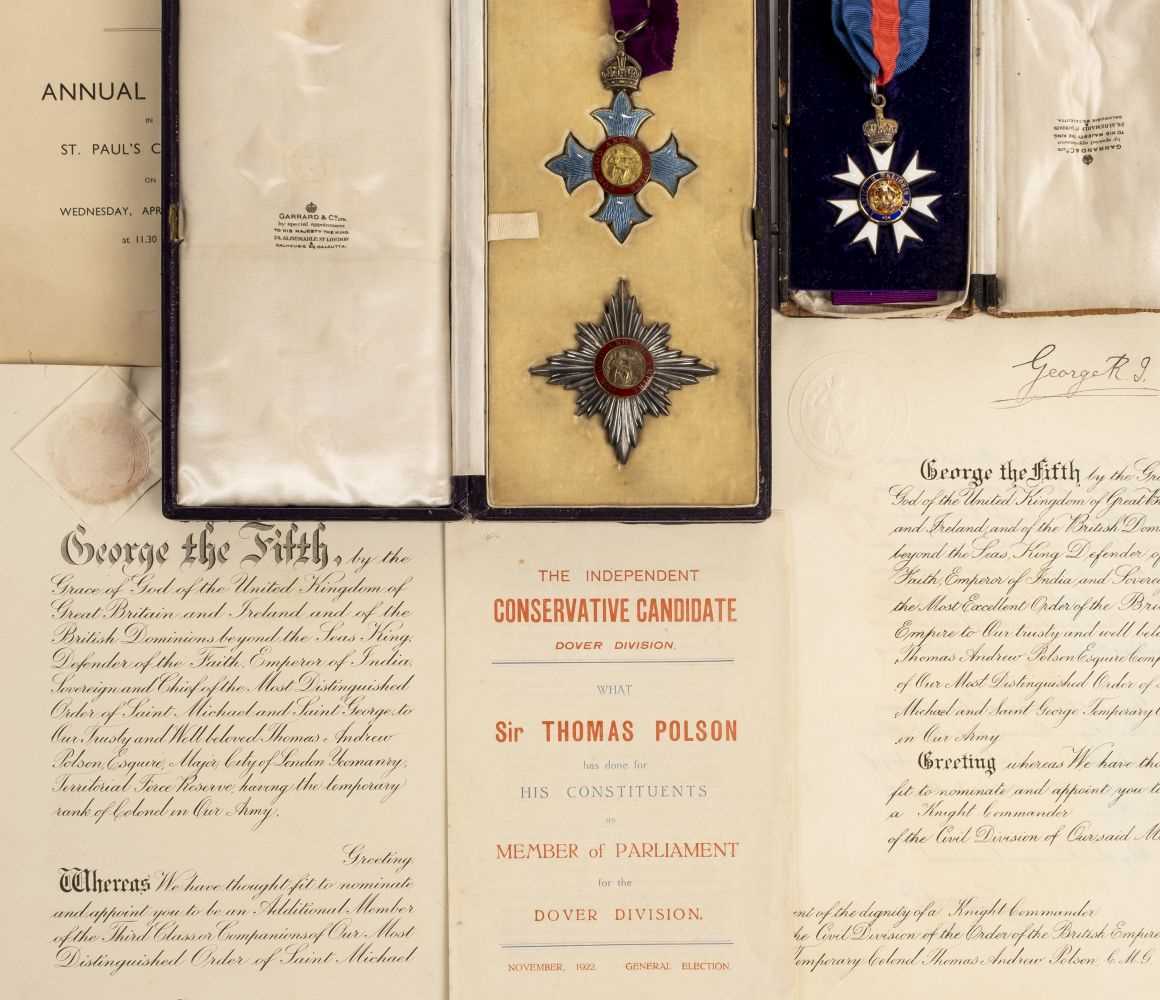 ANNUAL
IN
ST. PAUL'S C
ON
WEDNESDAY, APR
at 11.30
GARRARD & Co. LTD.
by special appointment
TO HIS MAJESTY THE KING
24, ALBEMARLE ST LONDON
DALHOUSIE SQ CALCUTTA.
GARRARD & Co. LTD
by special appointment
TO HIS MAJESTY THE KING
24, ALBEMARLE ST LONDON
DALHOUSIE SQ CALCUTTA.
George the Fifth, by the
Grace of God of the United Kingdom of
Great Britain and Ireland and of the
British Dominions beyond the Seas King,
Defender of the Faith, Emperor of India,
Sovereign and Chief of the Most Distinguished
Order of Saint Michael and Saint George, to
Our Trusty and Well beloved Thomas Andrew
Polson, Esquire, Major, City of London Yeomanry,
Territorial Force Reserve, having the temporary
rank of Colonel in Our Army,
Greeting
Whereas We have thought fit to nominate
and appoint you to be an Additional Member
of the Third Class or Companions of Our Most
Distinguished Order of Saint Michael
THE INDEPENDENT
CONSERVATIVE CANDIDATE
DOVER DIVISION.
WHAT
Sir THOMAS POLSON
has done for
HIS CONSTITUENTS
as
MEMBER of PARLIAMENT
for the
DOVER DIVISION.
NOVEMBER, 1922. GENERAL ELECTION.
George R. I.
George the Fifth by the Gra
God of the United Kingdom of Great B
and Ireland and of the British Domi
beyond the Seas, King Defender of
Faith, Emperor of India and Sovere
the Most Excellent Order of the Bri
Empire to Our trusty and well belo
Thomas Andrew Polson Esquire Comp
of Our Most Distinguished Order of
Michael and Saint George Temporary C
in Our Army
Greeting whereas We have tho
fit to nominate and appoint you to
a Knight Commander
of the Civil Division of Our said M
ent of the dignity of a Knight Commander
he Civil Division of the Order of the British Empire
Temporary Colonel Thomas Andrew Polson, C.M.G.